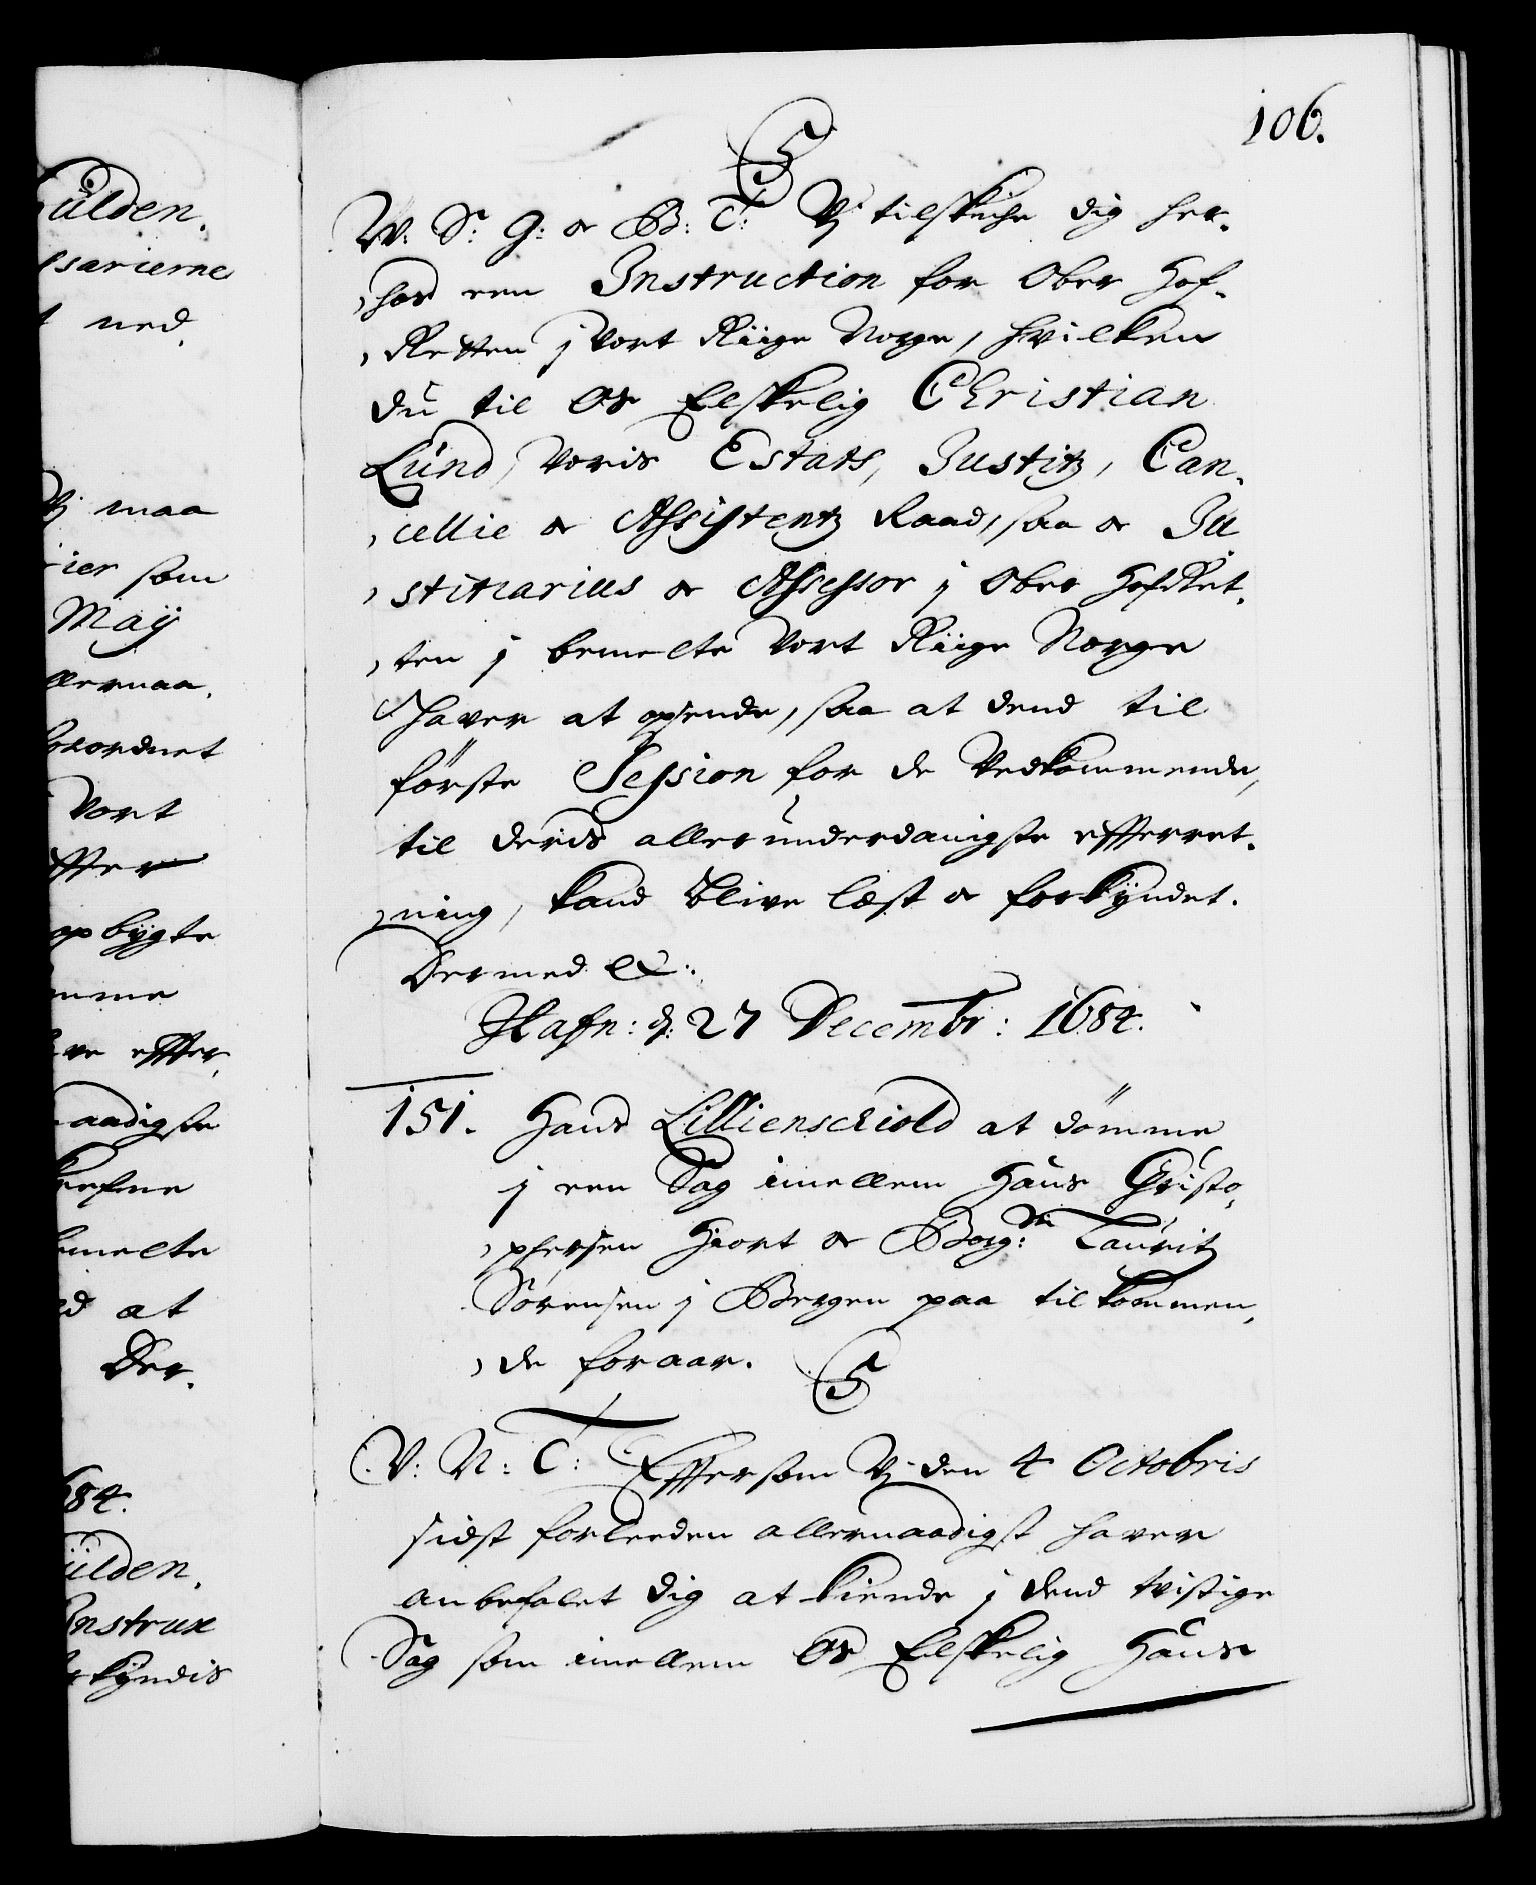 106.
C5
W: S: G: oc B: T: Vj tilskiche dig her-
hos een Instruction for Ober Hof-
Retten j Vort Riige Norge, hvilken
du til Os Elskelig Christian
Lund, Voris Estats, Justitz, Can-
cellie oc Assistentz Raad, saa oc Ju
stitiarius oc Assessor j Ober HofRet-
ten j bemelte Vort Riige Norge
haver at opsende, saa at dend til
förste Session for de Vedkommende,
til deris allerunderdanigste effterret-
ning, kand blive læst oc forkÿndet.
Dermed &:
Hafn: d: 27 Decembr: 1684.
151. Hans Lillienschiold at dömme
j een Sag imellem Hans Christo-
phersen Hiort oc Borg: Lauritz
Sörensen j Bergen paa tilkommen-
de foraar.
C5
V: N: T: Effersom Vj den 4 Octobris
sidst forleeden allernaadigst haver
anbefalet dig at kiende j dend tvistige
Sag som imellem Os Elskelig Hans
ülden,
sarierne
ned,
Vj maa
ier som
Maÿ
llernaa,
forordnet
Vort
effter
opbÿgte
effter,
naadigste
bemelte
at
Der,
684.
ülden,
Instrux
kÿndis